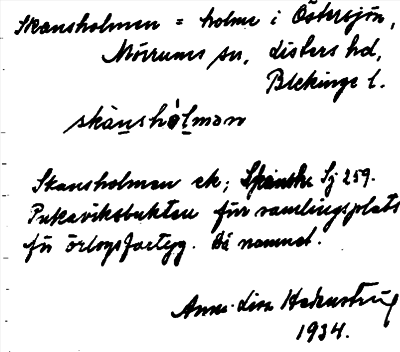 Skansholmen = holme i Östersjön,
Mörrums sn, Listers hd,
Blekinge l.
skànshólman
Skansholmen ek; Sj 259.
Pukaviksbukten för samlingsplats
för örlogsfartyg. Då namnet.
Anna-Lisa
1934.